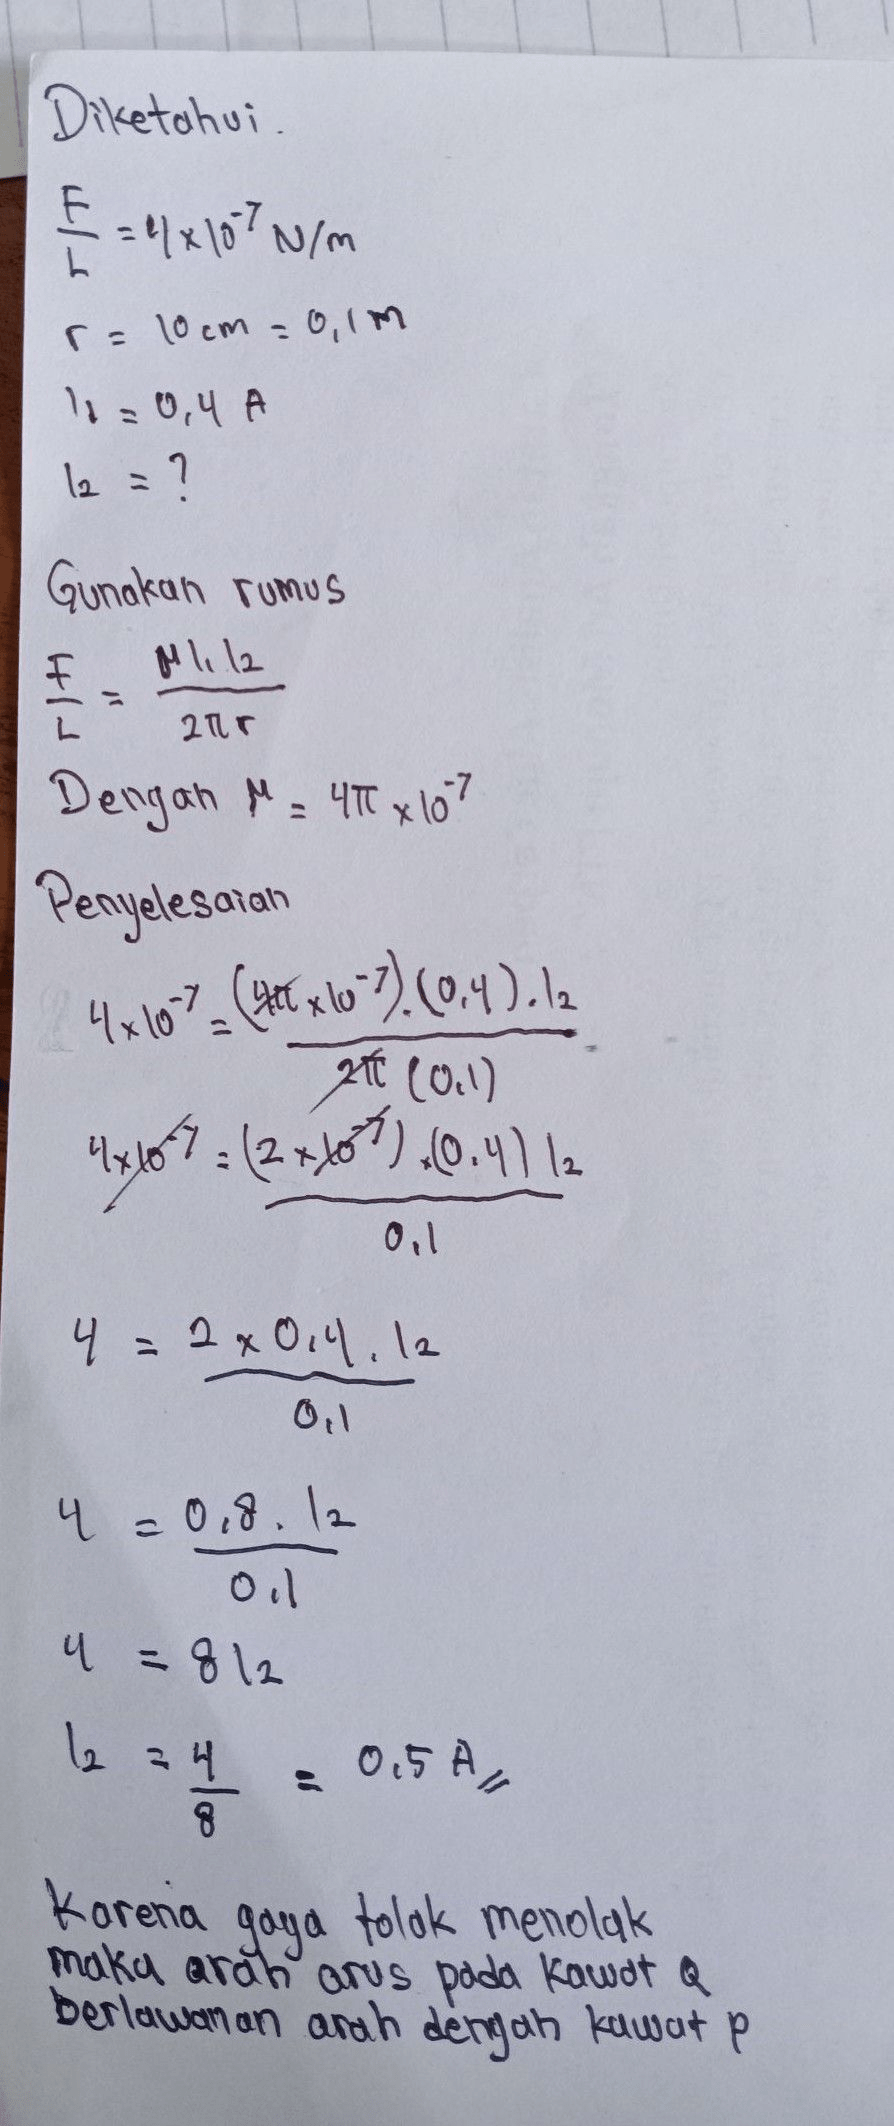 Diketahui.
F/L = 4 × 10⁻⁷ N/m
r = 10 cm = 0,1 m
I₁ = 0,4 A
I₂ = ?
Gunakan rumus
F/L = μ I₁ I₂ / 2π r
Dengan μ = 4π × 10⁻⁷
Penyelesaian
4 × 10⁻⁷ = (4π × 10⁻⁷) . (0,4) . I₂ / 2π (0,1)
4 × 10⁻⁷ = (2 × 10⁻⁷) . (0,4) I₂ / 0,1
4 = 2 × 0,4 . I₂ / 0,1
4 = 0,8 . I₂ / 0,1
4 = 8 I₂
I₂ = 4/8 = 0,5 A //
Karena gaya tolak menolak
maka arah arus pada kawat Q
berlawanan arah dengan kawat P